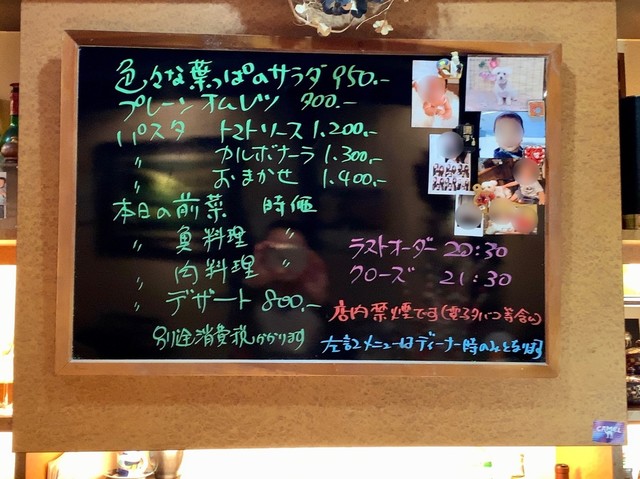 色々な葉っぱのサラダ 950.-
プレーンオムレツ 900.-
パスタ トマトソース 1,200.-
〃 カルボナーラ 1,300.-
〃 おまかせ 1,400.-
本日の前菜 時価
〃 魚料理 〃
〃 肉料理 〃
〃 デザート 800.-
別途消費税かかります
ラストオーダー 20:30
クローズ 21:30
店内禁煙です(電子タバコ等含む)
左記メニューはディナー時のみとなります
CAMEL